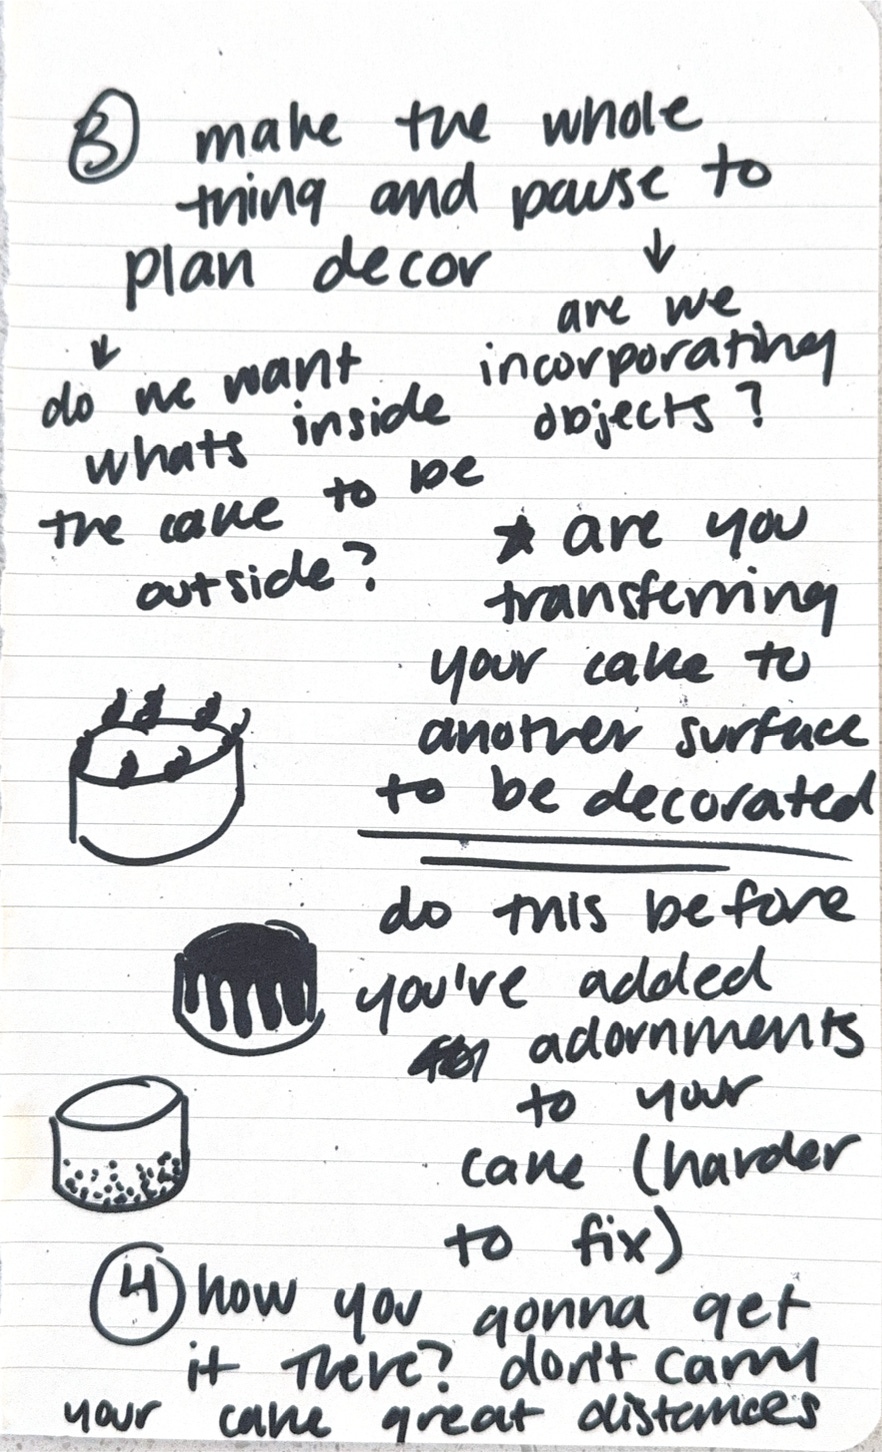 3 make the whole
thing and pause to
plan decor
↓
do we want
whats inside
the cake to be
outside?
↓
are we
incorporating
objects?
★ are you
transferring
your cake to
another surface
to be decorated
do this before
you've added
adornments
to your
cake (harder
to fix)
4 how you gonna get
it there? don't carry
your cake great distances